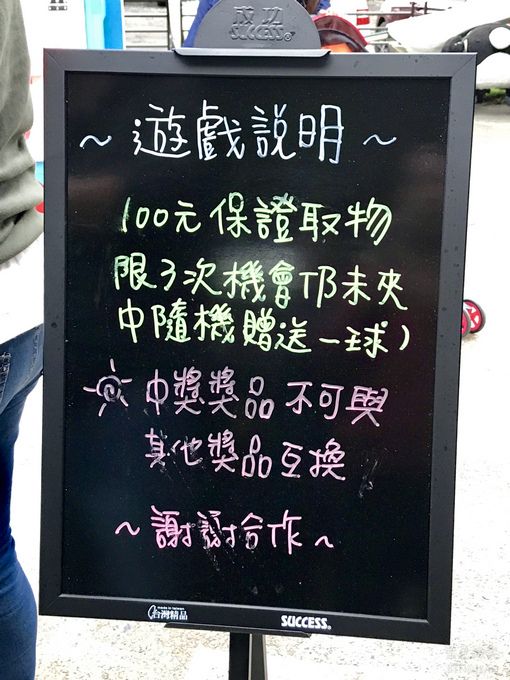 成功
SUCCESS®
～遊戲說明～
100元保證取物
限3次機會仍未夾
中隨機贈送一球)
中獎獎品不可與
其他獎品互換
～謝謝合作～
made in taiwan
台灣精品
SUCCESS®